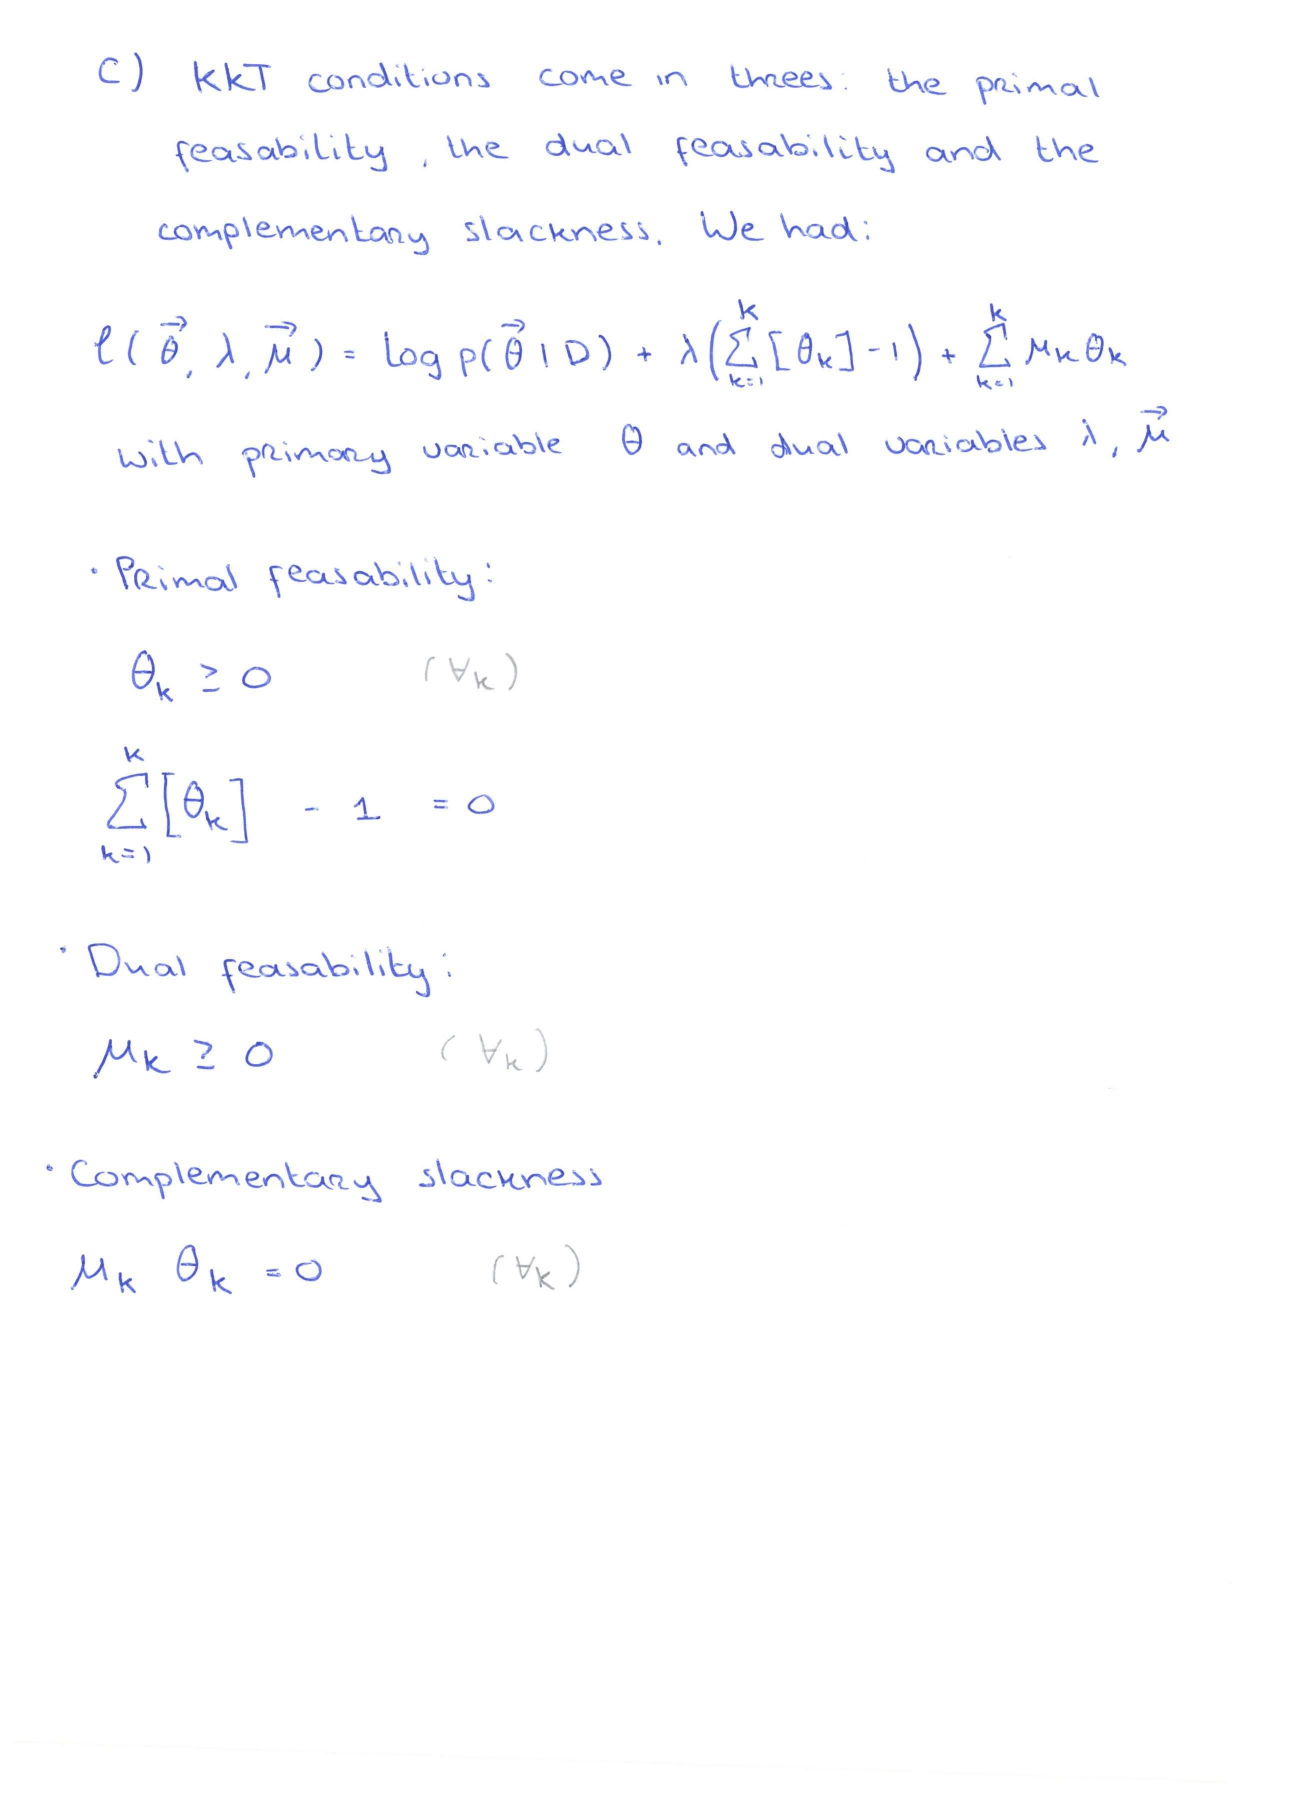 c) KKT conditions come in threes: the primal
feasability, the dual feasability and the
complementary slackness. We had:
ℓ(θ⃗, λ, μ⃗) = log p(θ⃗ | D) + λ(∑_{k=1}^{K} [θ_k] - 1) + ∑_{k=1}^{K} μ_k θ_k
with primary variable θ and dual variables λ, μ⃗
· Primal feasability:
θ_k ≥ 0 (∀_k)
∑_{k=1}^{K} [θ_k] - 1 = 0
· Dual feasability:
μ_k ≥ 0 (∀_k)
· Complementary slackness
μ_k θ_k = 0 (∀_k)